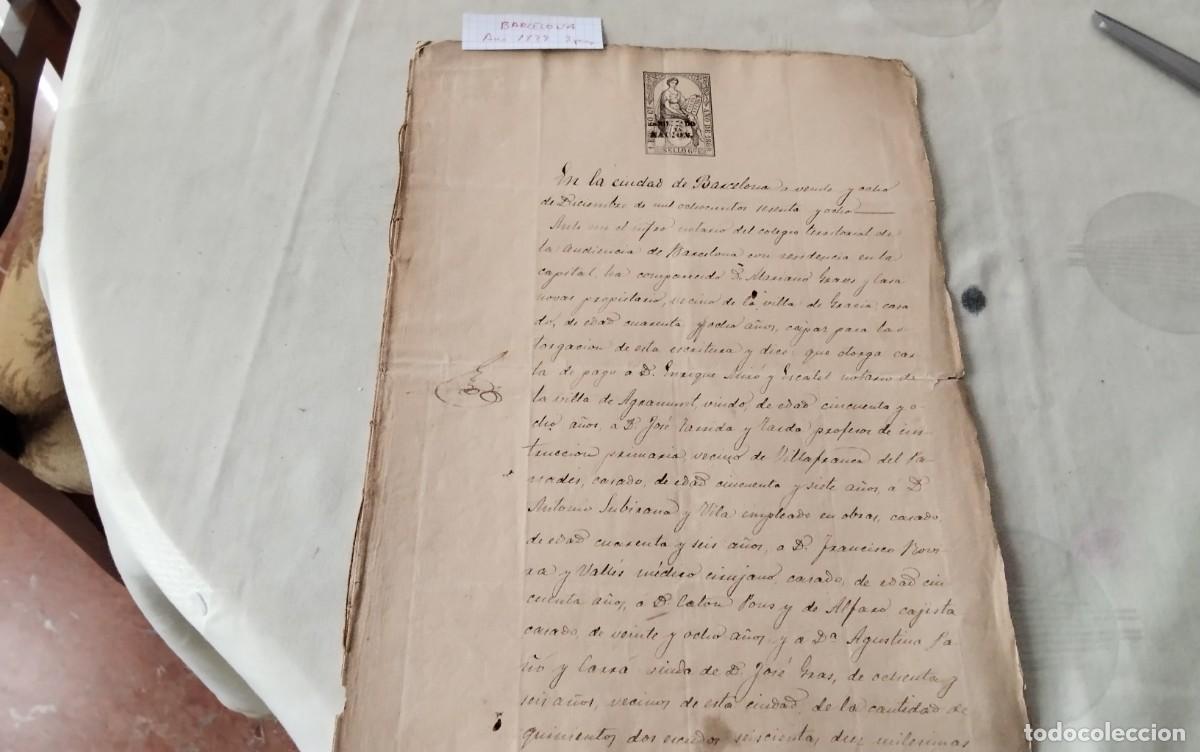 BARCELONA
Año 18
SELLO 6º
En la ciudad de Barcelona a veinte y ocho
de Diciembre de mil ochocientos sesenta y ocho
Ante mi el infro notario del colegio territorial de
la Audiencia de Barcelona con residencia en la
capital, ha comparecido D. Mariano Grases y Casa
novas propietario, vecino de la villa de Gracia, casa
do, de edad cuarenta y ocho años, capaz para la o
torgacion de esta escritura y dice: que otorga car
ta de pago a D. Enrique Miró y notario de
la villa de Agramunt, viudo, de edad cincuenta y o-
cho años, a D. José y profesor de ins-
truccion primaria, vecino de Villafranca del Pa-
nades, casado, de edad cincuenta y siete años, a D.
Antonio Subirana y Vila empleado en obras, casado,
de edad cuarenta y seis años, a D. Francisco Rovi-
ra y Vallés médico cirujano, casado, de edad cin
cuenta años, a D. Caton Pons y de Alfaro cajista
casado, de veinte y ocho años, y a Dª Agustina Pa-
y Carrá viuda de D. José Gras, de ochenta y
seis años, vecinos de esta ciudad, de la cantidad de
quinientos dos escudos seiscientas diez milesimas
todocoleccion